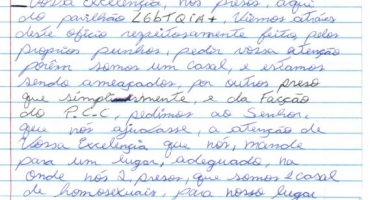 Vossa Excelência, nós presos, aqui
do pavilhão LGBTQIA+, Viemos atráves
deste oficio respeitosamente feitos pelos
proprios punhos, pedir vossa atenção
porém somos um casal, e estamos
sendo ameaçados, por outros preso
que simplismente, e da Facção
do P.C.C, pedimos ao Senhor,
que nós ajudasse, a atenção de
Vossa Excelencia que nós, mande
para um lugar, adequado, na
Onde nós 2 presos, que somos 1 casal
de homosexuais, para nosso lugar